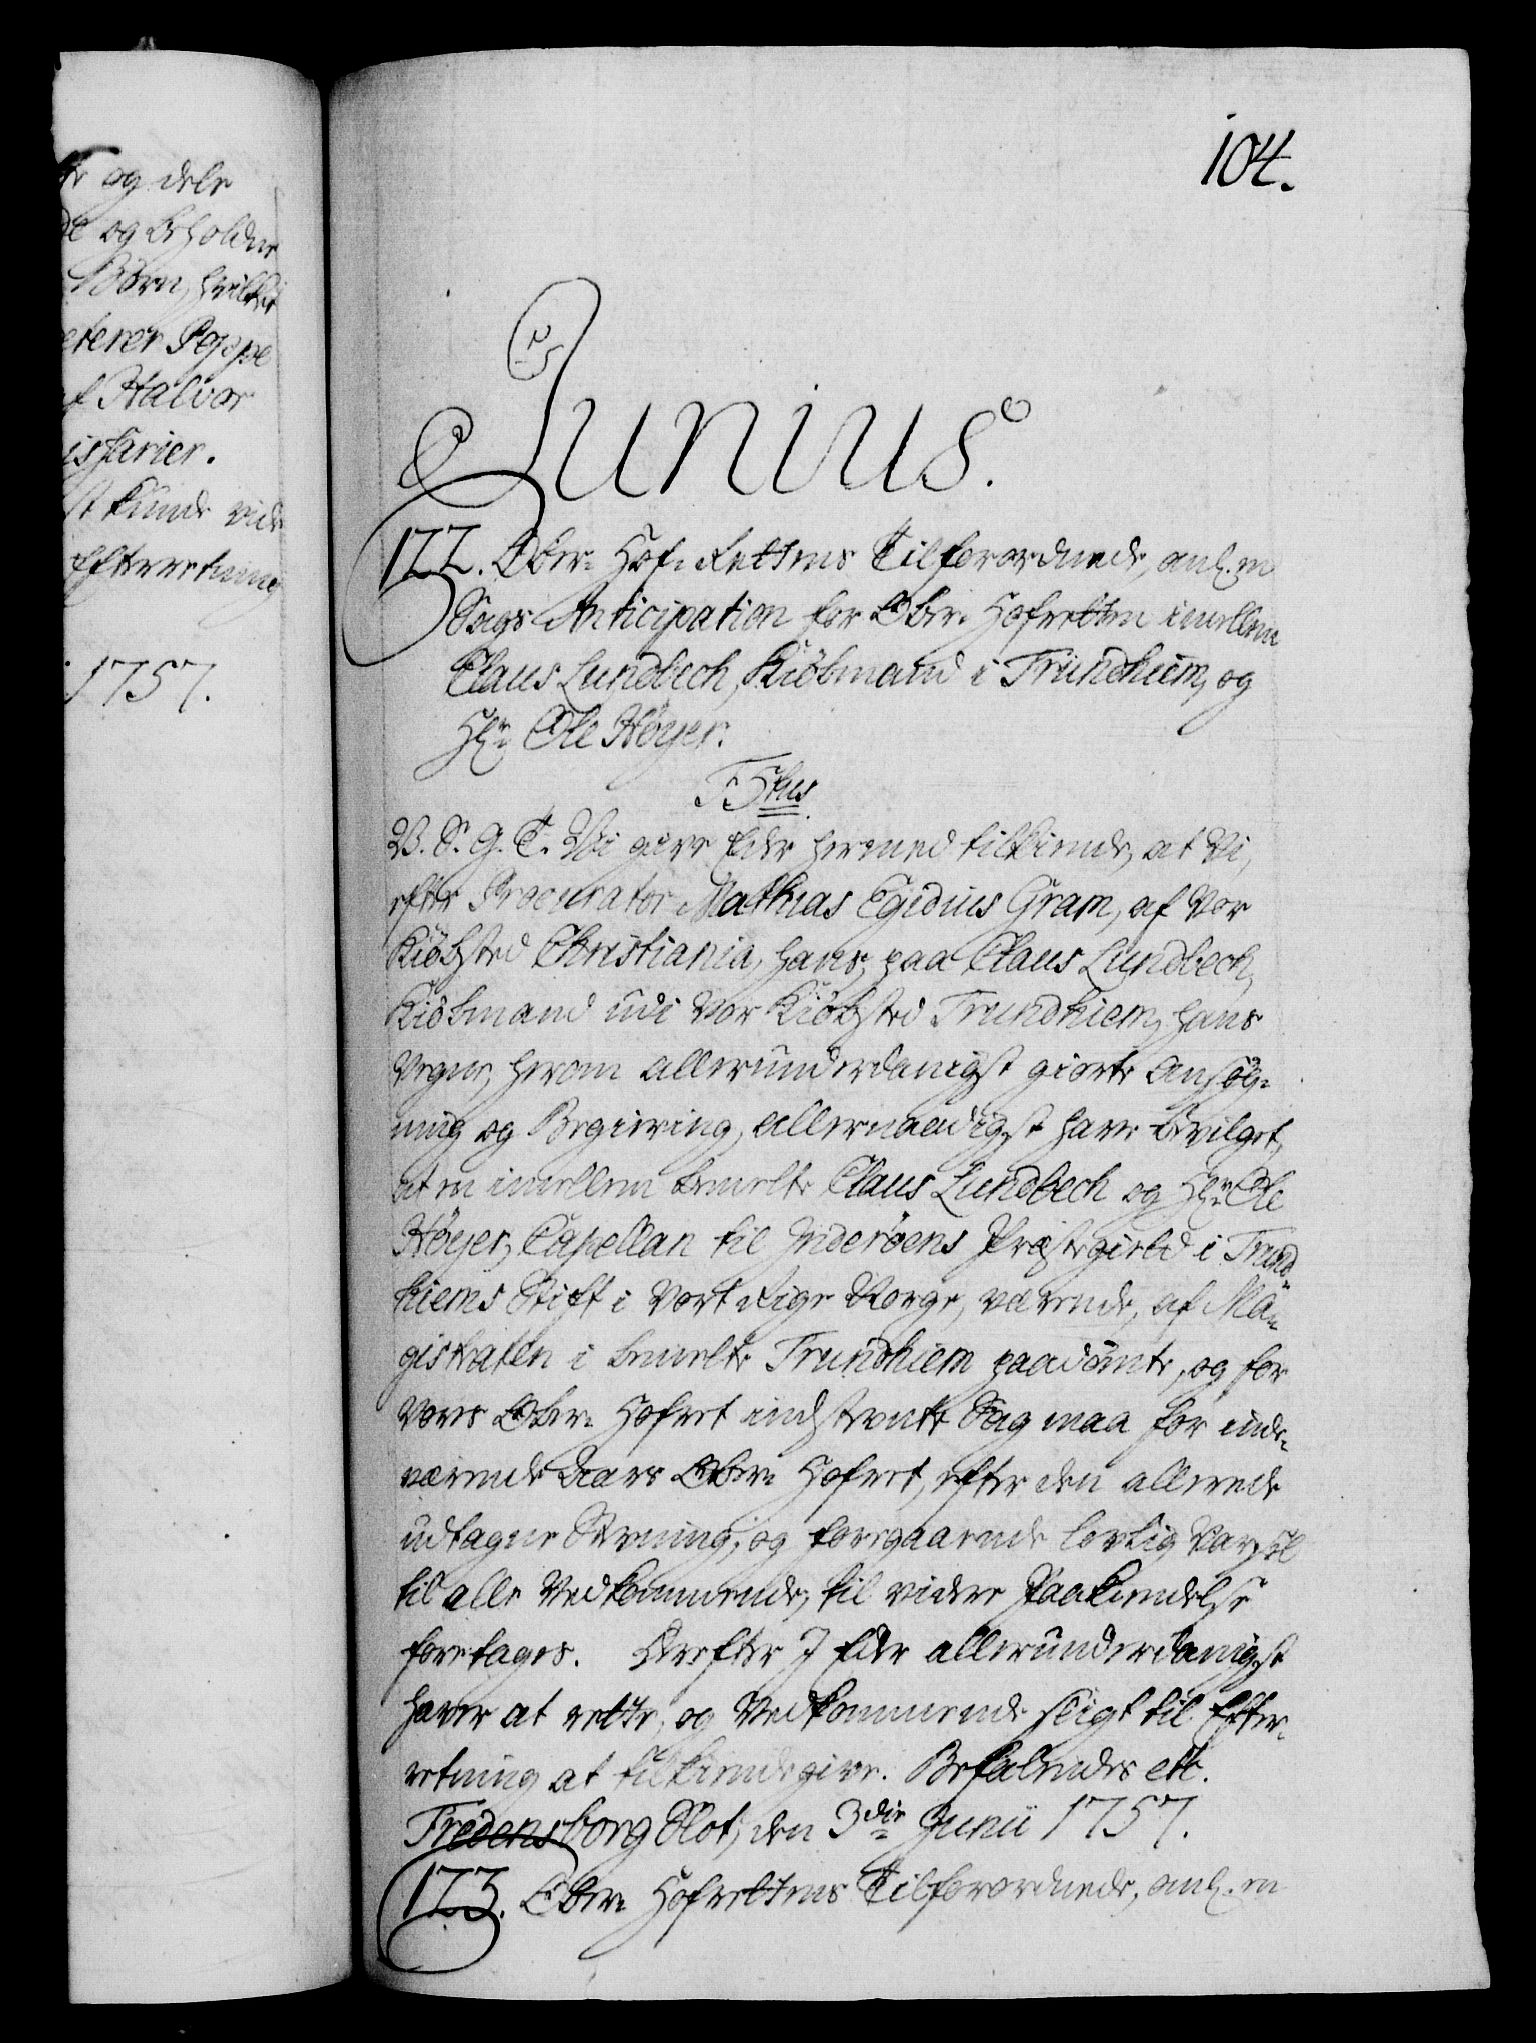 te og dele
de og beholder
Börn, hvilket
eterer Peppe
af Halvor
issarier.
st kunde vide
Efterretning
1757.
104.
Junius.
122. Ober-Hof-Rettens Tilforordnede, anl. en
Sags Anticipation for Ober-Hofretten imellem
Claus Lundbech, Kiöbmand i Trundhiem, og
Hr. Ole Höyer.
F 5tus
V. S. G. T. Vi give Eder hermed tilkiende, at Vi,
efter Procurator Mathias Egidius Gram, af Vor
Kiöbsted Christiania, hans, paa Claus Lundbech,
Kiöbmand udi Vor Kiöbsted Trundhiem, hans
Vegne, herom allerunderdanigst giorte Ansög-
ning og Begiering, allernaadigst have bevilget,
at en imellem bemelte Claus Lundbech og Hr. Ole
Höyer, Capellan til Inderöens Præstegield i Trund-
hiems Stift i Vort Rige Norge, værende, af Ma-
gistraten i bemelte Trundhiem paadömte, og for
Vores Ober-Hofret indstevnte Sag maa for inde-
værende Aars Ober-Hofret, efter den allerede
udtagne Stevning, og foregaaende lovlig Varsel
til alle Vedkommende, til videre Paakiendelse
foretages. Derefter I Eder allerunderdanigst
haver at rette, og Vedkommende sligt til Efter-
retning at tilkiendegive. Befalendes etc.
Fredensborg Slot, den 3die Junii 1757.
123. Ober-Hofrettens Tilforordnede, anl. en